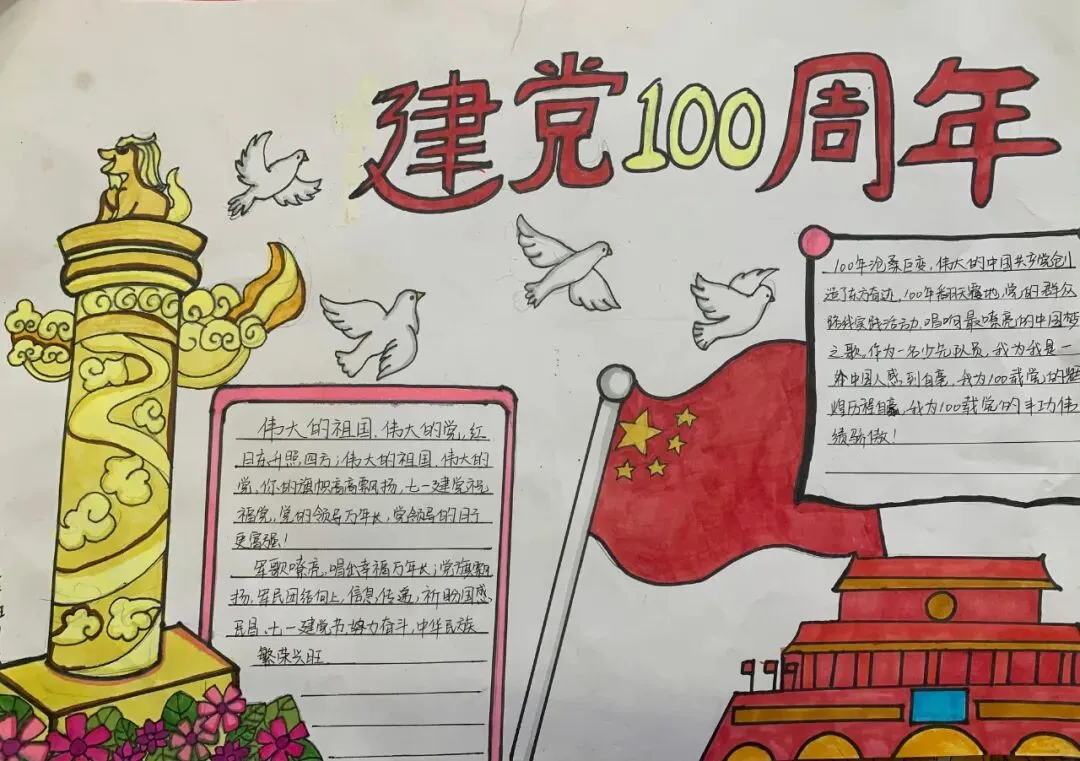 建党100周年
100年沧桑巨变，伟大的中国共产党创
造了东方奇迹，100年翻天覆地，党的群众
路线实践活动，唱响最嘹亮的中国梦
之歌。作为一名少先队员，我为我是一
中国人感到自豪，我为100载党的
煌历程自豪，我为100载党的丰功伟
绩骄傲！
伟大的祖国、伟大的党，红
日东升照四方；伟大的祖国、伟大的
党，你的旗帜高高飘扬，七一建党祝
福党，党的领导万年长，党领导的日子
更富强！
军歌嘹亮，唱出幸福万年长；党旗飘
扬，军民团结向上，信息传递，祈盼国盛
民昌，七一建党节，努力奋斗，中华民族
繁荣兴旺